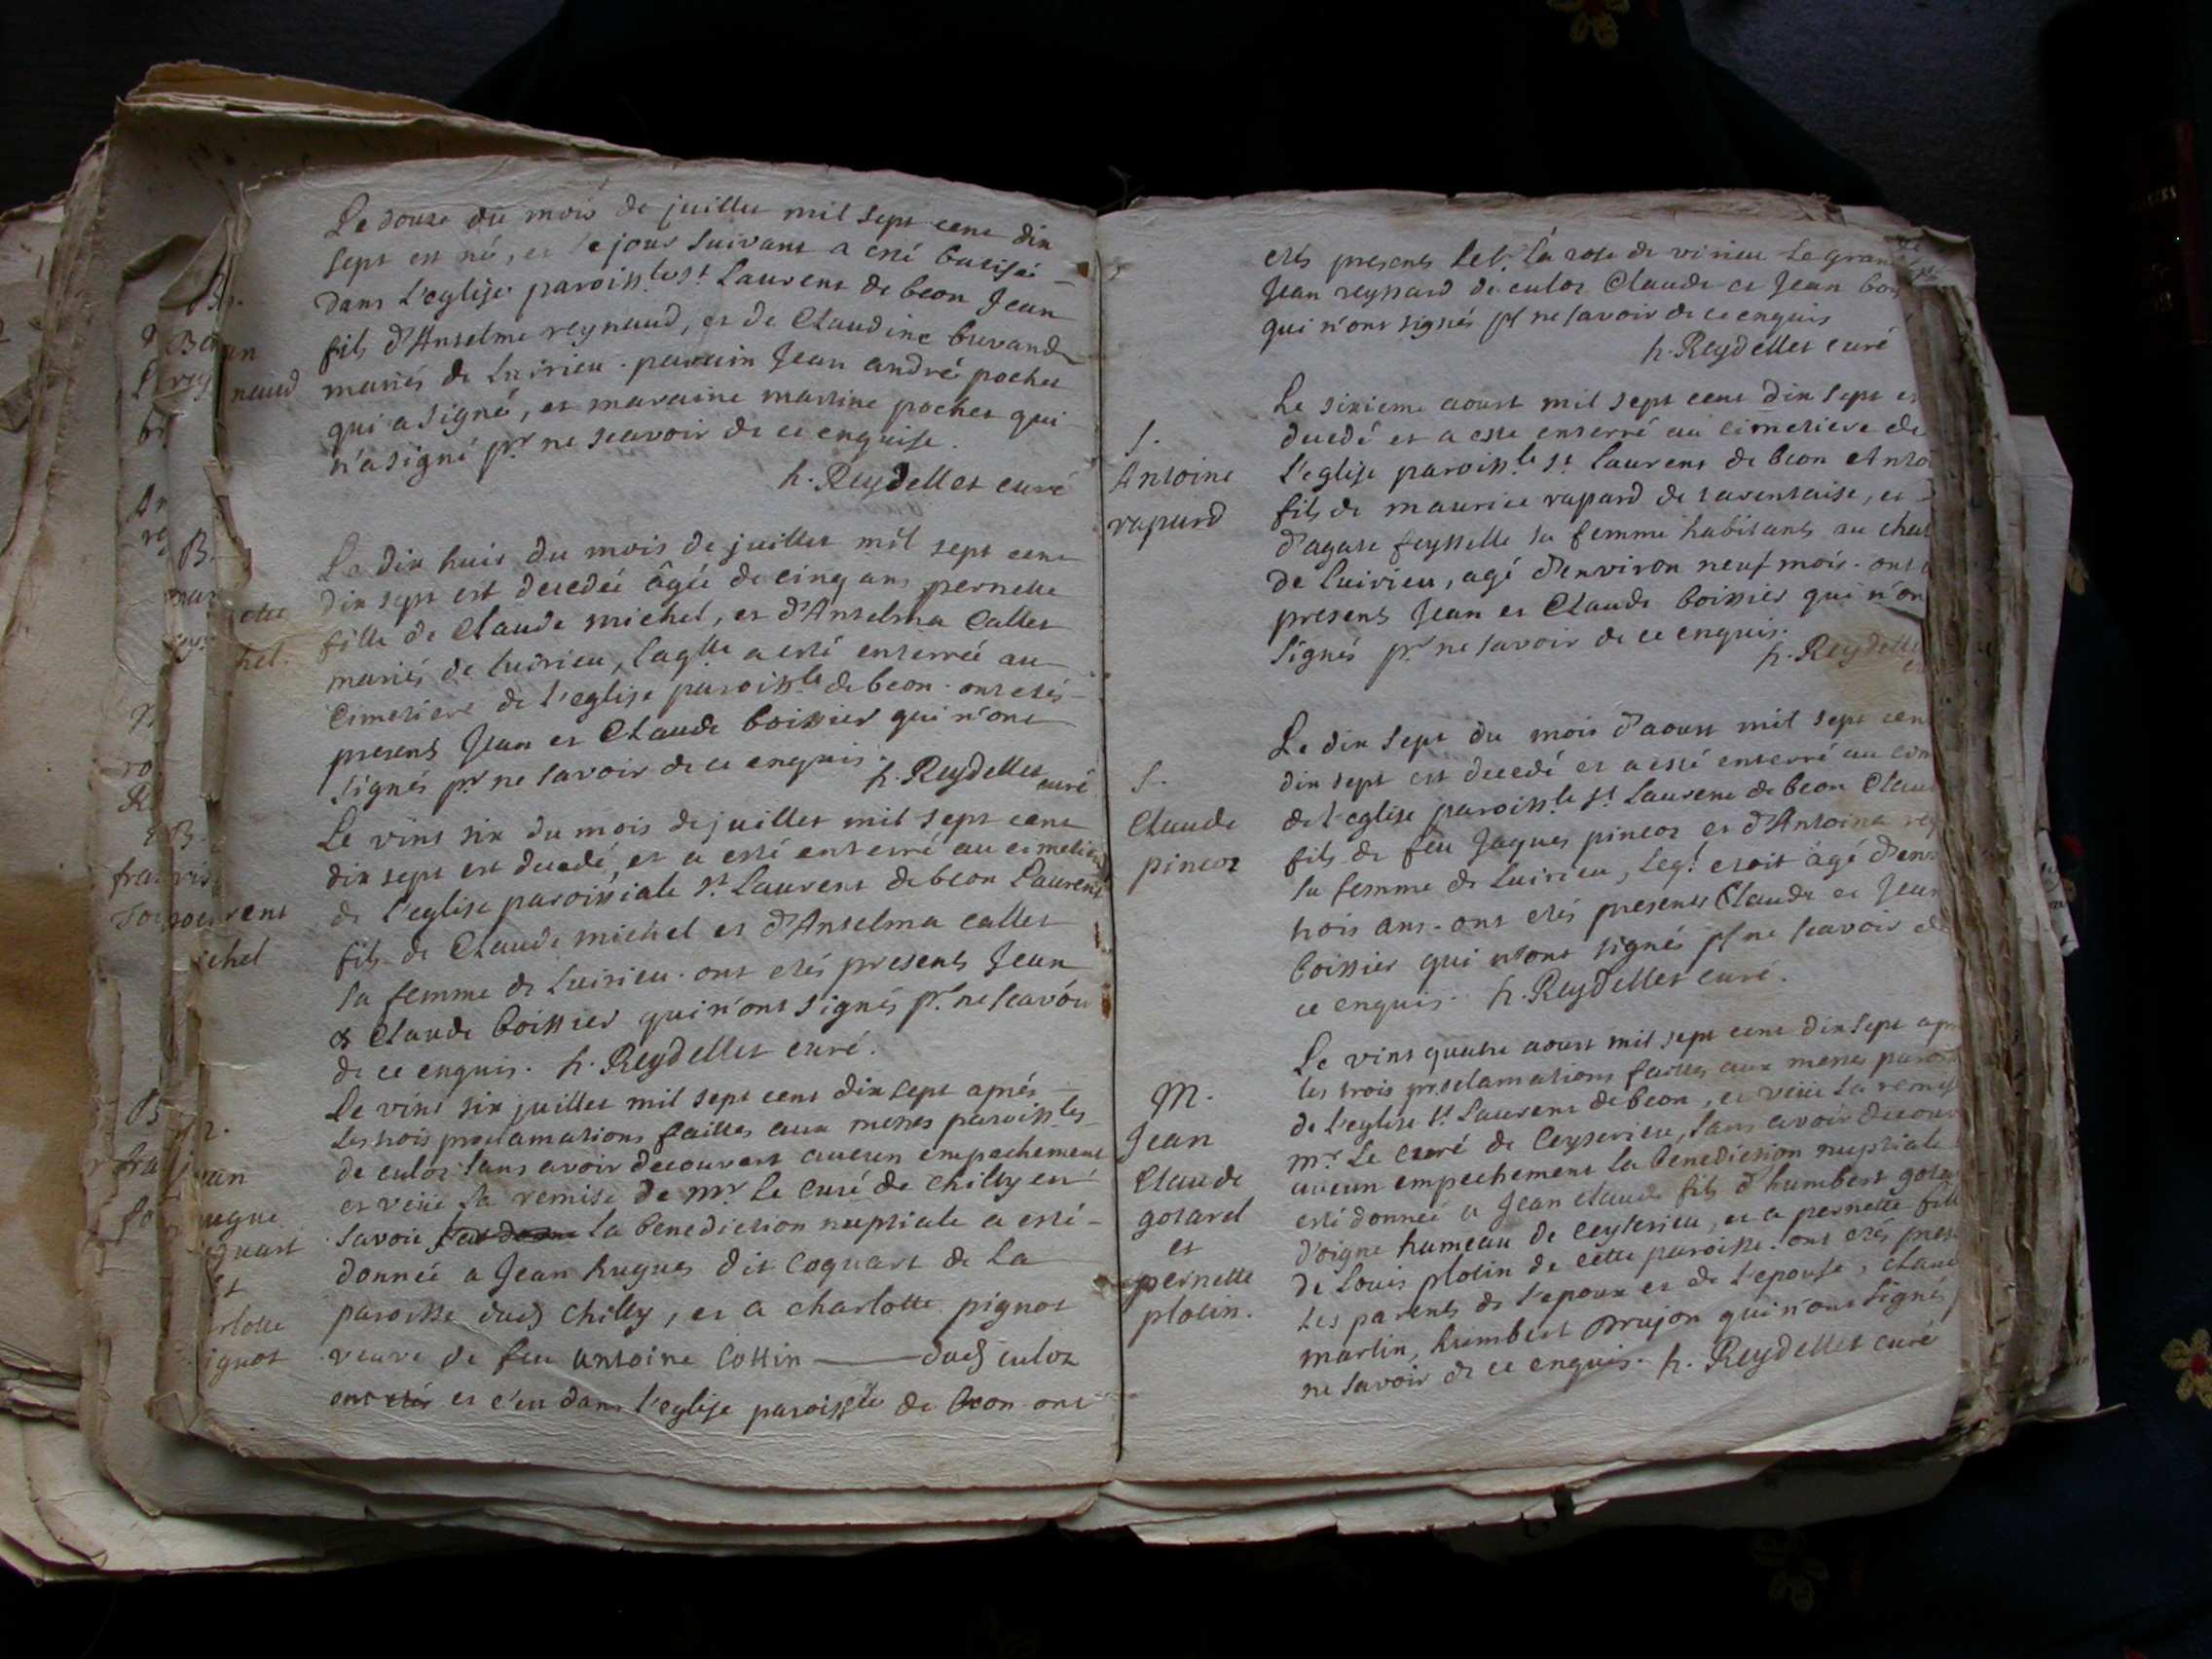 Le douze du mois de juillet mil sept cent dix
sept est né, et le jour suivant a esté batisé
dans l'eglise paroiss.le st Laurent de beon Jean
fils d'Anselme reynaud, et de Claudine buvand
mariés de luirieu . parain Jean andré pochet
qui a signé, et maraine martine pochet qui
n'a signé pr. ne scavoir de ce enquise.
h. Reydellet curé
Le dix huit du mois de juillet mil sept cent
dix sept est decedée âgée de cinq ans pernette
fille de Claude michel, et d'Anselma Callet
mariés de luirieu, laqlle a esté enterrée au
Cimetiere de l'eglise paroiss.le de beon . ont etés
presents Jean et Claude boissier qui n'ont
signés pr ne savoir de ce enquis .
h. Reydellet curé
Le vint six du mois de juillet mil sept cent
dix sept est decedé, et a esté enterré au cimetiere
de l'eglise paroissiale st Laurent de beon Laurent
fils de Claude michel et d'Anselma callet
sa femme de luirieu . ont etés presents Jean
& Claude boissier qui n'ont signés pr. ne scavoir
de ce enquis . h. Reydellet curé .
Le vint six juillet mil sept cent dix sept aprés
les trois proclamations faittes aux messes paroiss.les
de culoz sans avoir decouvert aucun empechement
et veüe la remise de mr Le Curé de Chilly en
savoie la benediction nuptiale a esté
donnée a Jean hugues dit Coquart de la
paroisse dud chilly, et a charlotte pignot
veuve de feu antoine Cottin ——— dud culoz
et c'en dans l'eglise paroissle de beon ont
etés presents le Sr. La rose de virieu le grand
Jean reyssard de culoz Claude et Jean boi
qui n'ont signés pr ne savoir de ce enquis
h. Reydellet curé
S.
Antoine
rapard
Le sixieme aoust mil sept cent dix sept es
decedé et a esté enterré au cimetiere de
l'eglise paroiss.le st Laurent de beon Anto
fils de maurice rapard de tarentaise, et
d'agate feysselle sa femme habitants au chat
de luirieu, agé d'environ neuf mois . ont
presents Jean et Claude boissier qui n'on
signés pr ne savoir de ce enquis .
h. Reydelle
S.
Claude
pincoz
Le dix sept du mois d'aoust mil sept cen
dix sept est decedé et a esté enterré au cim
de l'eglise paroiss.le st Laurent de beon Clau
fils de feu Jaques pincoz et d'Antoina rey
sa femme de luirieu, leqt etoit âgé d'env
trois ans . ont etés presents Claude et Jean
boissier qui n'ont signés pr ne scavoir de
ce enquis . h. Reydellet curé .
M.
Jean
Claude
gotarel
et
pernette
plotin.
Le vint quatre aoust mil sept cent dix sept apr
les trois proclamations faittes aux messes parois
de l'eglise st Laurent de beon, et veüe la remis
mr Le Curé de Ceyserieu, sans avoir decouv
aucun empechement la benediction nuptiale
esté donnée a Jean claude fils d'humbert gota
d'oigne hameau de Ceyserieu, et a pernette fill
de Louis plotin de cette paroisse . ont etés pres
les parents de l'epoux et de l'epouse, claud
martin, humbert Drujon qui n'ont signés
ne savoir de ce enquis . h. Reydellet curé